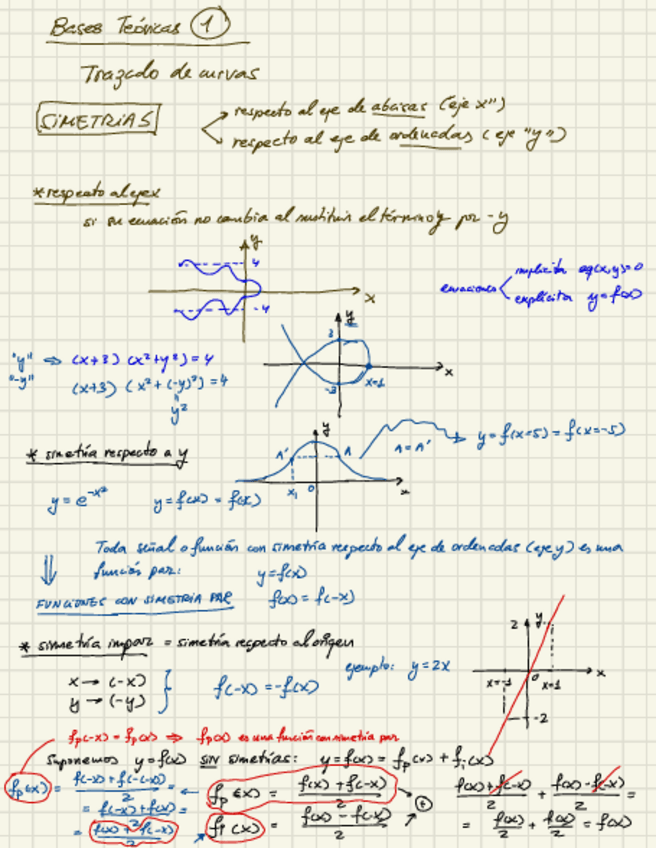 Bases Teóricas 1
Trazado de curvas
SIMETRIAS
respecto al eje de abcisas (eje x")
respecto al eje de ordenadas (eje "y")
* respecto al eje x
si su ecuación no cambia al sustituir el término y por -y
y
4
-4
x
ecuaciones
implícita eq(x,y)=0
explícita y=f(x)
"y" ⇒ (x+3) (x²+y²) = 4
"-y" (x+3) (x²+(-y)²) = 4
y²
y
3
-3
x=1
x
* simetría respecto a y
y
A' A
x₁ 0
x
A = A'
y=f(x=5) = f(x=-5)
y = e^-x² y=f(x) = f(x)
Toda señal o función con simetría respecto al eje de ordenadas (eje y) es una
función par: y=f(x)
FUNCIONES CON SIMETRIA PAR f(x) = f(-x)
* simetría impar = simetría respecto al origen
x → (-x)
y → (-y)
f(-x) = -f(x)
ejemplo: y = 2x
2 y
x=-1 0 x=1 x
-2
fp(-x) = fp(x) ⇒ fp(x) es una función con simetria par
Suponemos y=f(x) SIN simetrías: y=f(x) = fp(x) + fi(x)
fp(x) = f(-x)+f(-(-x)) / 2 =
= f(-x)+f(x) / 2 =
= f(x)+f(-x) / 2
fp(x) = f(x)+f(-x) / 2
fi(x) = f(x) - f(-x) / 2
+
f(x)+f(-x) / 2 + f(x)-f(-x) / 2 =
= f(x) / 2 + f(x) / 2 = f(x)